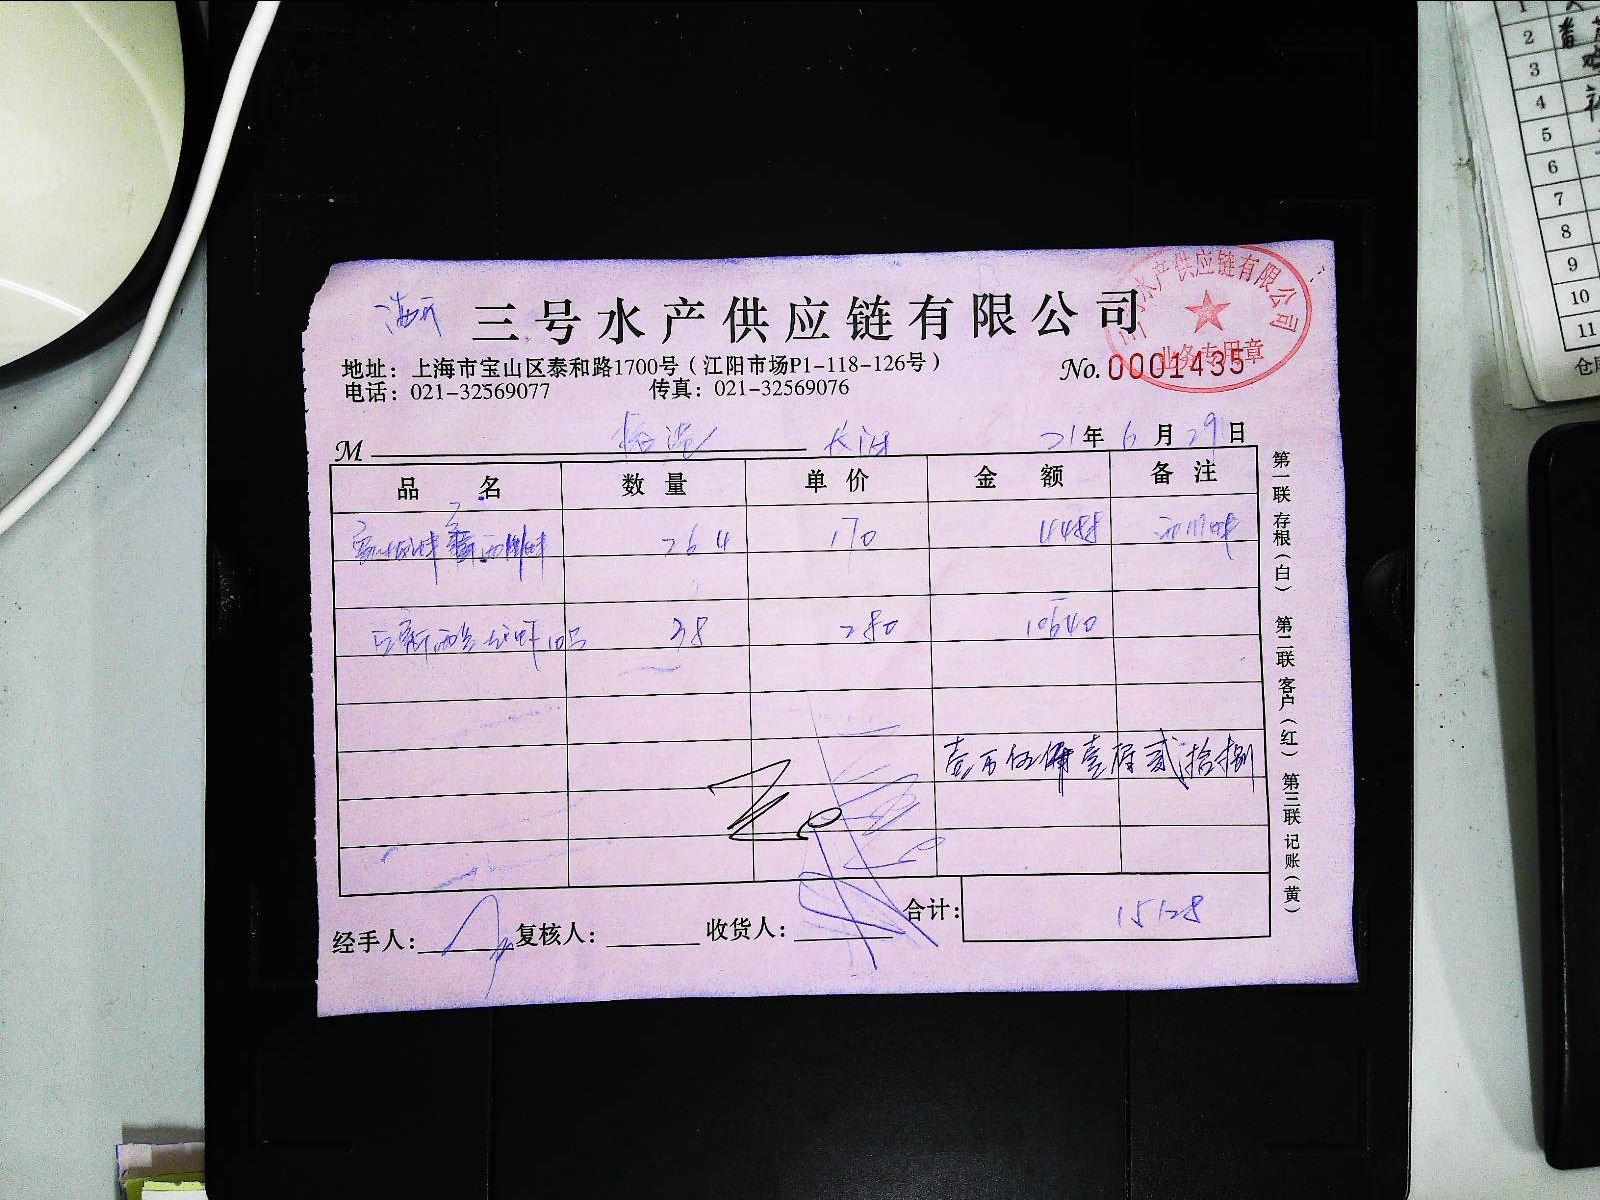 三号水产供应链有限公司
水产供应链有限公司
业务专用章
地址：上海市宝山区泰和路1700号（江阳市场P1-118-126号）
No. 0001435
电话：021-32569077 传真：021-32569076
M 21年6月29日
品名 数量 单价 金额 备注
264 170 4488
38 280 10640
壹万伍仟壹佰贰拾捌
合计： 15128
经手人： 复核人： 收货人：
第一联 存根（白） 第二联 客户（红） 第三联 记账（黄）
1
2
3
4
5
6
7
8
9
10
11